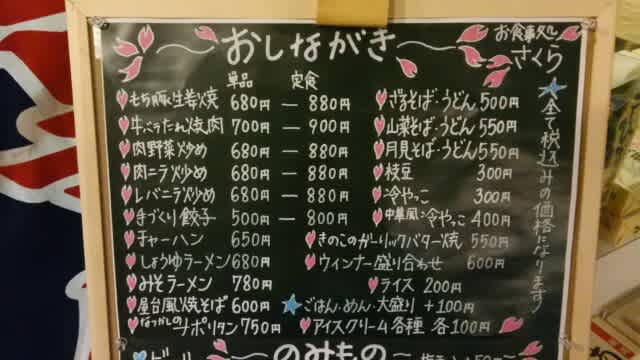 おしながき
お食事処
さくら
単品 定食
もち豚生姜焼 680円 — 880円
牛バラたれ焼肉 700円 — 900円
肉野菜炒め 680円 — 880円
肉ニラ炒め 680円 — 880円
レバニラ炒め 680円 — 880円
手づくり餃子 500円 — 800円
チャーハン 650円
しょうゆラーメン 680円
みそラーメン 780円
屋台風焼そば 600円
なつかしのナポリタン 750円
ざるそば・うどん 500円
山菜そば・うどん 550円
月見そば・うどん 550円
枝豆 300円
冷やっこ 300円
中華風冷やっこ 400円
きのこのガーリックバター焼 550円
ウィンナー盛り合わせ 600円
ライス 200円
ごはん・めん・大盛り +100円
アイスクリーム各種 各100円
全て税込みの価格になります
のみもの